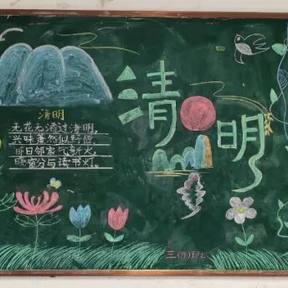 清明
清明
无花无酒过清明,
兴味萧然似野僧。
昨日邻家乞新火,
晓窗分与读书灯。